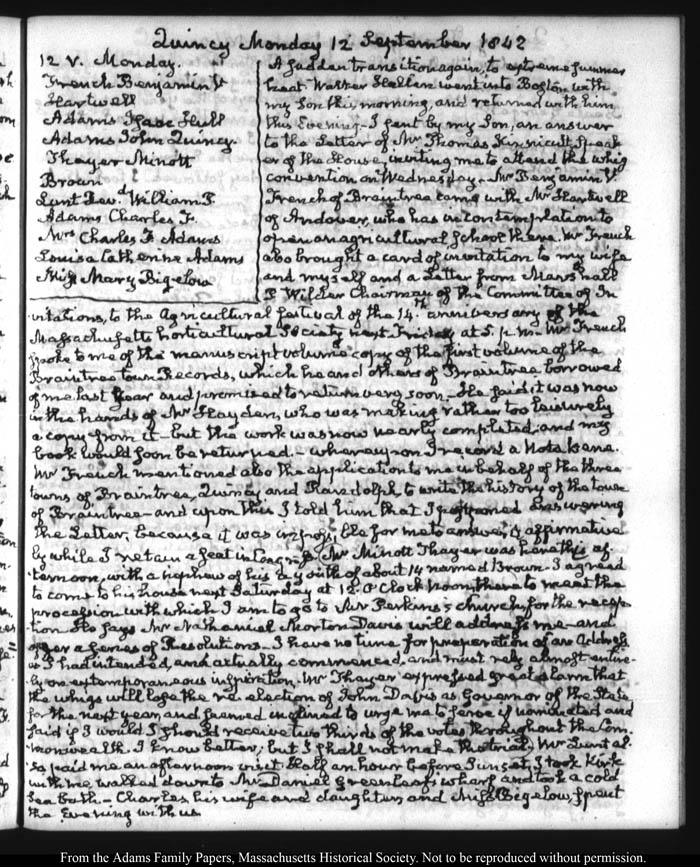 Quincy Monday 12 September 1842
12 V. Monday.
French Benjamin V
Hartwell
Adams Isaac Hull
Adams John Quincy
Thayer Minott
Brown
Lunt Revd. William P.
Adams Charles F.
Mrs Charles F. Adams
Louisa Catherine Adams
Miss Mary Bigelow
A sudden transition again, to extreme summer
heat. Walter Hellen went into Boston with
my Son this morning, and returned with him
this Evening. I sent by my Son, an answer
to the Letter of Mr Thomas Kinnicutt, Speak
er of the House, inviting me to attend the whig
convention on Wednesday. Mr Benjamin V.
French of Braintree came with Mr Hartwell
of Andover, who has in contemplation to
open an agricultural School there. Mr French
also brought a card of invitation to my wife
and myself and a Letter from Marshall
P Wilder Chairman of the Committee of In
vitations, to the Agricultural festival of the 14th anniversary of the
Massachusetts horticultural Society next Friday at 5. p.m. Mr French
spoke to me of the manuscript volume copy of the first volume of the
Braintree town Records, which he and others of Braintree borrowed
of me last year and promised to return very soon. He said it was now
in the hands of Mr Hayden, who was making rather too leisurely
a copy from it—but the work was now nearly completed, and my
book would soon be returned.—whereupon I record a Nota bene.
Mr French mentioned also the application to me in behalf of the three
towns of Braintree, Quincy and Randolph to write the history of the town
of Braintree—and upon this I told him that I postponed answering
the Letter, because it was impossible for me to answer it affirmative
ly while I retain a seat in Congress. Mr Minott Thayer was here this af
ternoon, with a nephew of his a youth of about 14 named Brown. I agreed
to come to his house next Saturday at 12. O'Clock Noon, there to meet the
procession with which I am to go to Mr Perkins's church, for the recep
tion. He says Mr Nathaniel Morton Davis will address me—and
offer a series of Resolutions. I have no time for preparation of an Address
as I had intended, and actually commenced, and must rely almost entire
ly on extemporaneous inspiration. Mr Thayer expressed great alarm that
the whigs will lose the re-election of John Davis as Governor of the State
for the next year, and seemed inclined to urge me to serve if nominated and
said if I would I should receive two thirds of the votes throughout the Com
monwealth. I know better; but I shall not make the trial. Mr Lunt al
so paid me an afternoon visit. Half an hour before Sunset, I took Kirk
with me, walked down to Mr Daniel Greenleaf's wharf and took a cold
Sea bath—Charles, his wife and daughter, and Miss Bigelow, spent
the Evening with us
From the Adams Family Papers, Massachusetts Historical Society. Not to be reproduced without permission.